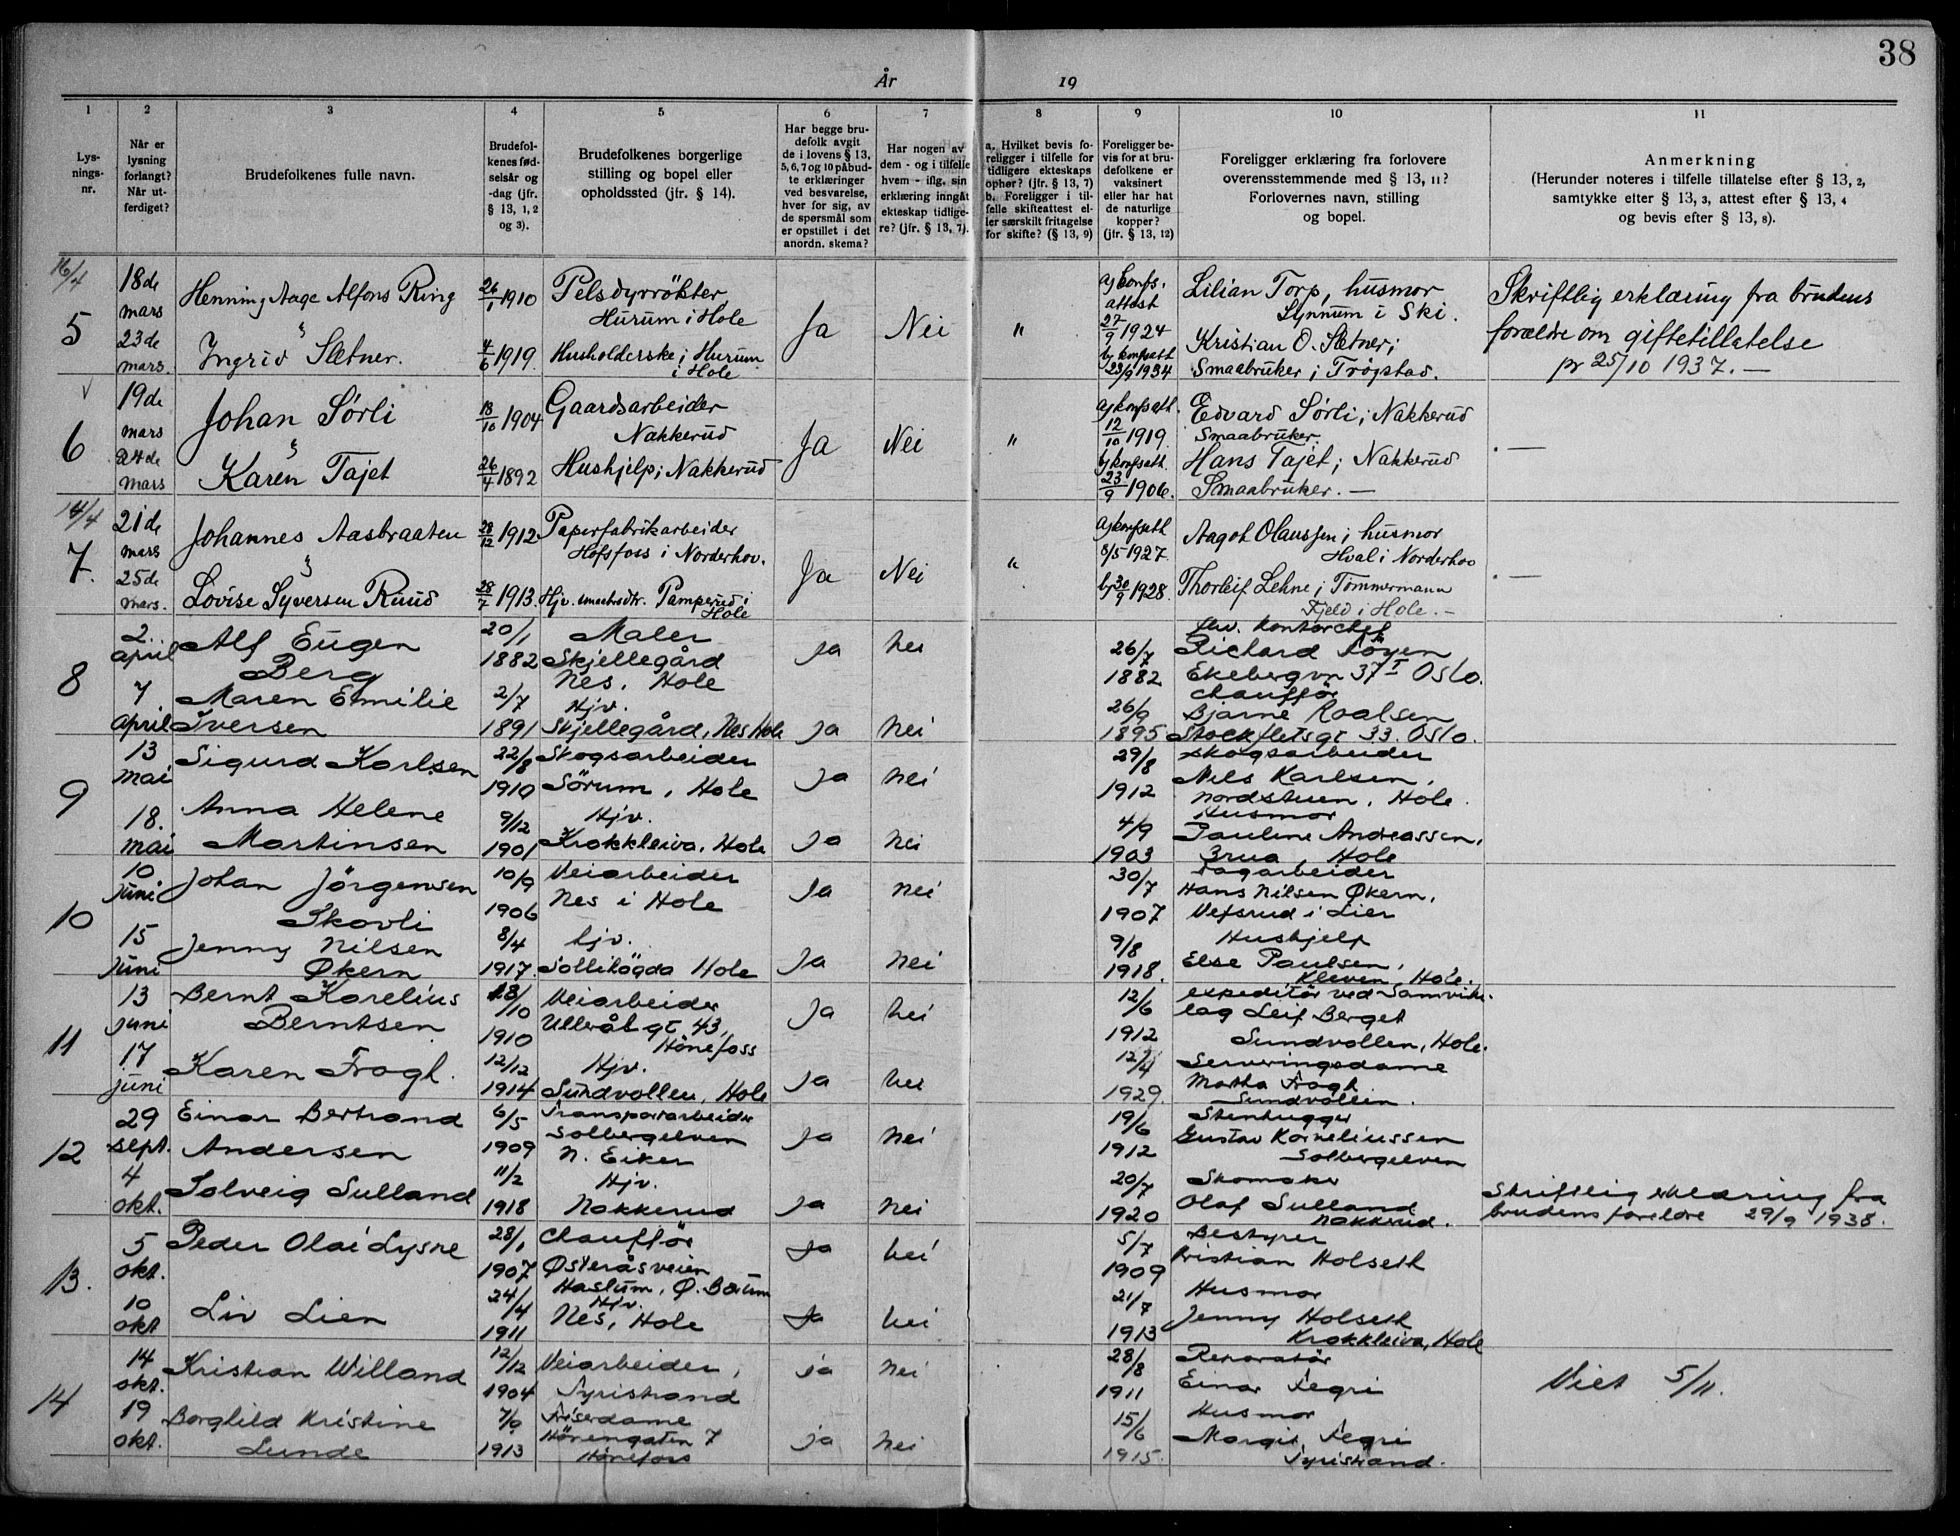 38
År 19
1 2 3 4 5 6 7 8 9 10 11
Lys-
nings-
nr.
Når er
lysning
forlangt?
Når ut-
ferdiget?
Brudefolkenes fulle navn.
Brudefol-
kenes fød-
selsår og
-dag (jfr.
§ 13, 1, 2
og 3).
Brudefolkenes borgerlige
stilling og bopel eller
opholdssted (jfr. § 14).
Har begge bru-
defolk avgit
de i lovens § 13,
5, 6, 7 og 10 påbud-
te erklæringer
ved besvarelse,
hver for sig, av
de spørsmål som
er opstillet i det
anordn. skema?
Har nogen av
dem - og i tilfelle
hvem - iflg. sin
erklæring inngåt
ekteskap tidlige-
re? (jfr. § 13, 7).
a. Hvilket bevis fo-
religger i tilfelle for
tidligere ekteskaps
ophør? (jfr. § 13, 7)
b. Foreligger i til-
felle skifteattest el-
ler særskilt fritagelse
for skifte? (§ 13, 9)
Foreligger be-
vis for at bru-
defolkene er
vaksinert
eller har hat
de naturlige
kopper?
(jfr. § 13, 12)
Foreligger erklæring fra forlovere
overensstemmende med § 13, 11?
Forlovernes navn, stilling
og bopel.
Anmerkning
(Herunder noteres i tilfelle tillatelse efter § 13, 2,
samtykke efter § 13, 3, attest efter § 13, 4
og bevis efter § 13, 8).
16/4
5
18de
mars
23de
mars.
Henning Aage Alfons Ring
Ingrid Sletner.
26/1 1910
4/6 1919.
Pelsdyrrökter
Hurum i Hole
Husholderske; Hurum
i Hole
Ja
Nei
"
a) konfs.
attest
27/9 1924
b) konfsatt
23/9 1934
Lilian Torp, husmor
i Ski.
Kristian O. Sletner;
Smaabruker i Trøgstad.
Skriftlig erklæring fra brudens
forældre om giftetillatelse
pr 25/10 1937. —
✓
6
19de
mars
24de
mars
Johan Sörli
Karen Tajet
18/10 1904
26/4 1892
Gaardsarbeider
Nakkerud
Hushjelp; Nakkerud
Ja
Nei
"
a) konfsatt.
12/10 1919.
b) konfsatt.
23/9 1906.
Edvard Sörli; Nakkerud
Smaabruker.
Hans Tajet; Nakkerud
Smaabruker. —
. —
14/4
7.
21de
mars
25de
mars.
Johannes Aasbraaten
Lovise Syversen Ruud
28/12 1912
28/7 1913.
Paperfabrikarbeider
Hofsfoss i Norderhov.
Hjv. Pamperud i
Hole
Ja
Nei
"
a) konfsatt
8/5 1927
b) 30/9 1928.
Aagot Olaussen; husmor
Hval i Norderhov
Thorleif Lehne; Tömmermann
Fjeld i Hole. —
. —
8
2.
april
7
april
Alf Eugen
Berg
Maren Emilie
Iversen
20/1
1882
2/7
1891
Maler
Skjellegård
Nes, Hole
Hjv.
Skjellegård, Nes Hole
Ja
nei
Ja
nei
26/7
1882
26/9
1895
kontorchef
Richard
Ekebergvn 37 I Oslo.
Chaufför
Bjarne Roalsen
Stockfletsgt 33. Oslo.
9
13
mai
18.
mai
Sigurd Karlsen
Anna Helene
Martinsen
22/8
1910
9/12
1901
Skogsarbeider
Sörum, Hole
Hjv.
Krokkleiva, Hole
Ja
nei
Ja
nei
29/8
1912
4/9
1903
skogsarbeider
Nils Karlsen,
Nordstuen, Hole.
Husmor
Pauline Andreassen,
Brua, Hole
10
10
juni
15
juni
Johan Jörgensen
Skovli
Jenny Nilsen
Økern
10/9
1906
8/4
1917.
Veiarbeider
Nes i Hole
hjv.
Sollihögda Hole
Ja
nei
Ja
nei
30/7
1907
9/8
1918.
Sagarbeider
Hans Nilsen Økern,
i Lier
Hushjelp
Else Paulsen,
Kleven, Hole.
11
13
juni
17
juni
Bernt Karelius
Berntsen
Karen Frogt.
18/10
1910
12/12
1914
Veiarbeider
Ullerålgt 43,
Hönefoss
Hjv.
Sundvollen, Hole
Ja
nei
Ja
nei
12/6
1912
12/4
1929.
expeditör ved Samvirke.
lag Leif Berget
Sundvollen, Hole.
Serveringsdame
Martha Frogt
Sundvollen.
12
29
sept.
4
okt.
Einar Bertrand
Andersen
Solveig Sulland
6/5
1909
11/2
1918
Transportarbeider
Solbergelven
N. Eiker
Hjv.
Nakkerud
Ja
nei
Ja
nei
19/6
1912
20/7
1920
Stenhugger
Gustav Korneliussen
Solbergelven
Skomaker
Olaf Sulland
Nakkerud.
Skriftlig erklæring fra
brudens foreldre 29/9 1938.
13.
5
okt.
10
okt
Peder Olai Lysne
Liv Lien
28/1
1907
24/4
1911
Chaufför
Østeråsveien
Haslum, Ø. Bærum
Hjv.
Nes, Hole
Ja
nei
Ja
nei
5/7
1909
21/7
1913
Bestyrer
Kristian Holseth
Husmor
Jenny Holseth
Krokkleiva, Hole
14
14
okt.
19
okt.
Kristian Willand
Borghild Kristine
Lunde
12/12
1904
7/9
1913
Veiarbeider,
Tyristrand
Friserdame
Hönengaten 7
Hönefoss
ja
nei
ja
nei
28/8
1911
15/6
1915.
Reparatör
Einar Fegri
Husmor
Margit Fegri
Tyristrand.
Viet 5/11.